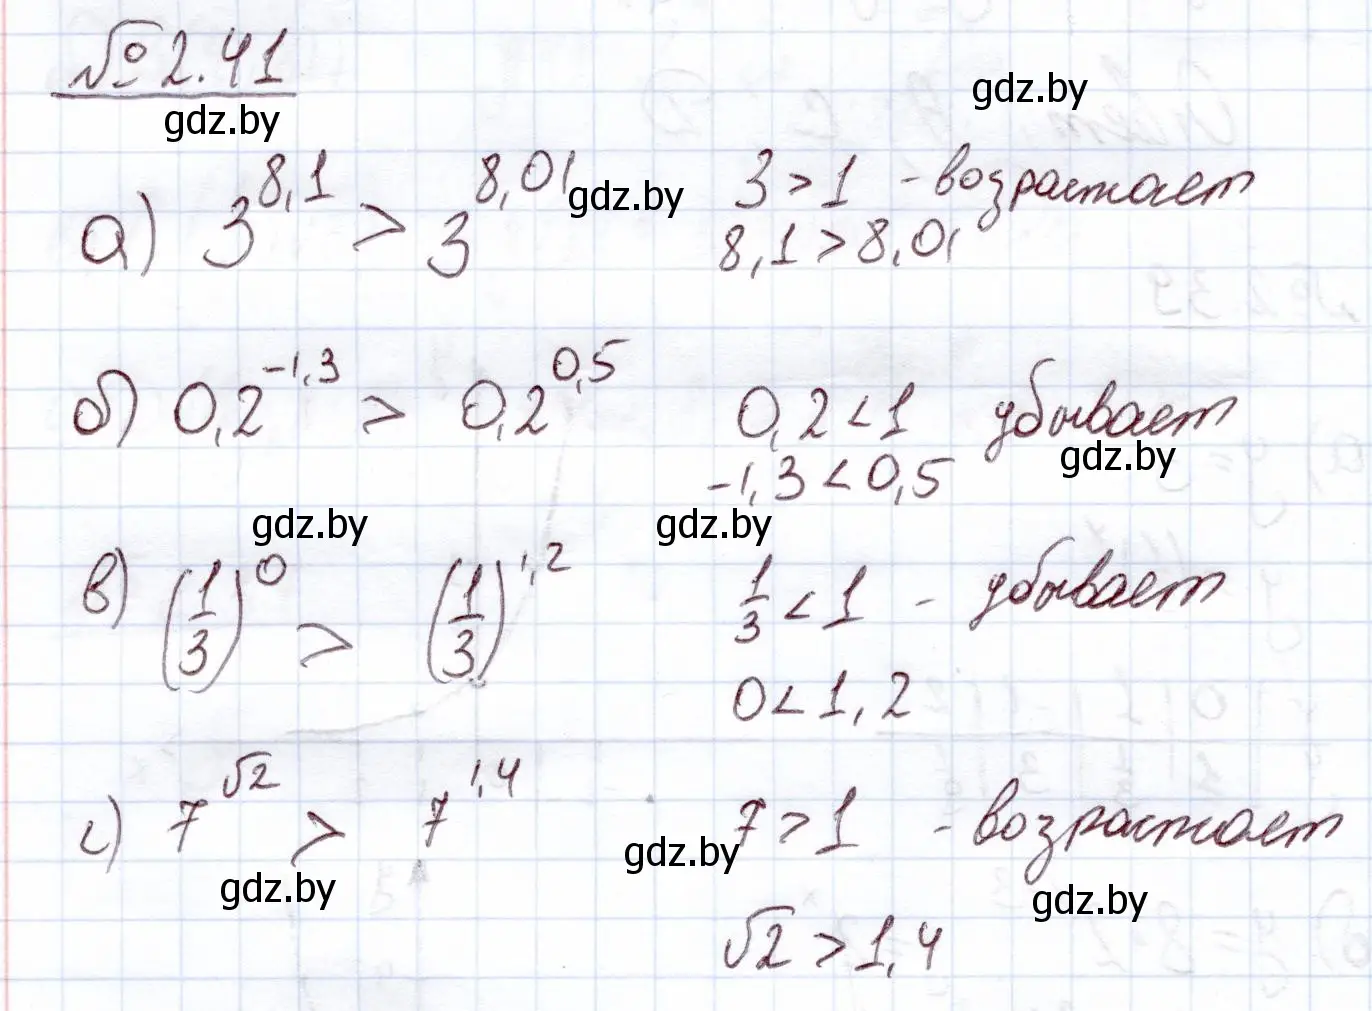 № 2.41
gdz.by
gdz.by
а) 3^8,1 > 3^8,01 3 > 1 - возрастает
gdz.by
8,1 > 8,01
б) 0,2^-1,3 > 0,2^0,5 0,2 < 1 убывает
gdz.by
-1,3 < 0,5
gdz.by
gdz.by
в) (1/3)^0 > (1/3)^1,2 1/3 < 1 - убывает
0 < 1,2
г) 7^√2 > 7^1,4 7 > 1 - возрастает
gdz.by
gdz.by
gdz.by
√2 > 1,4